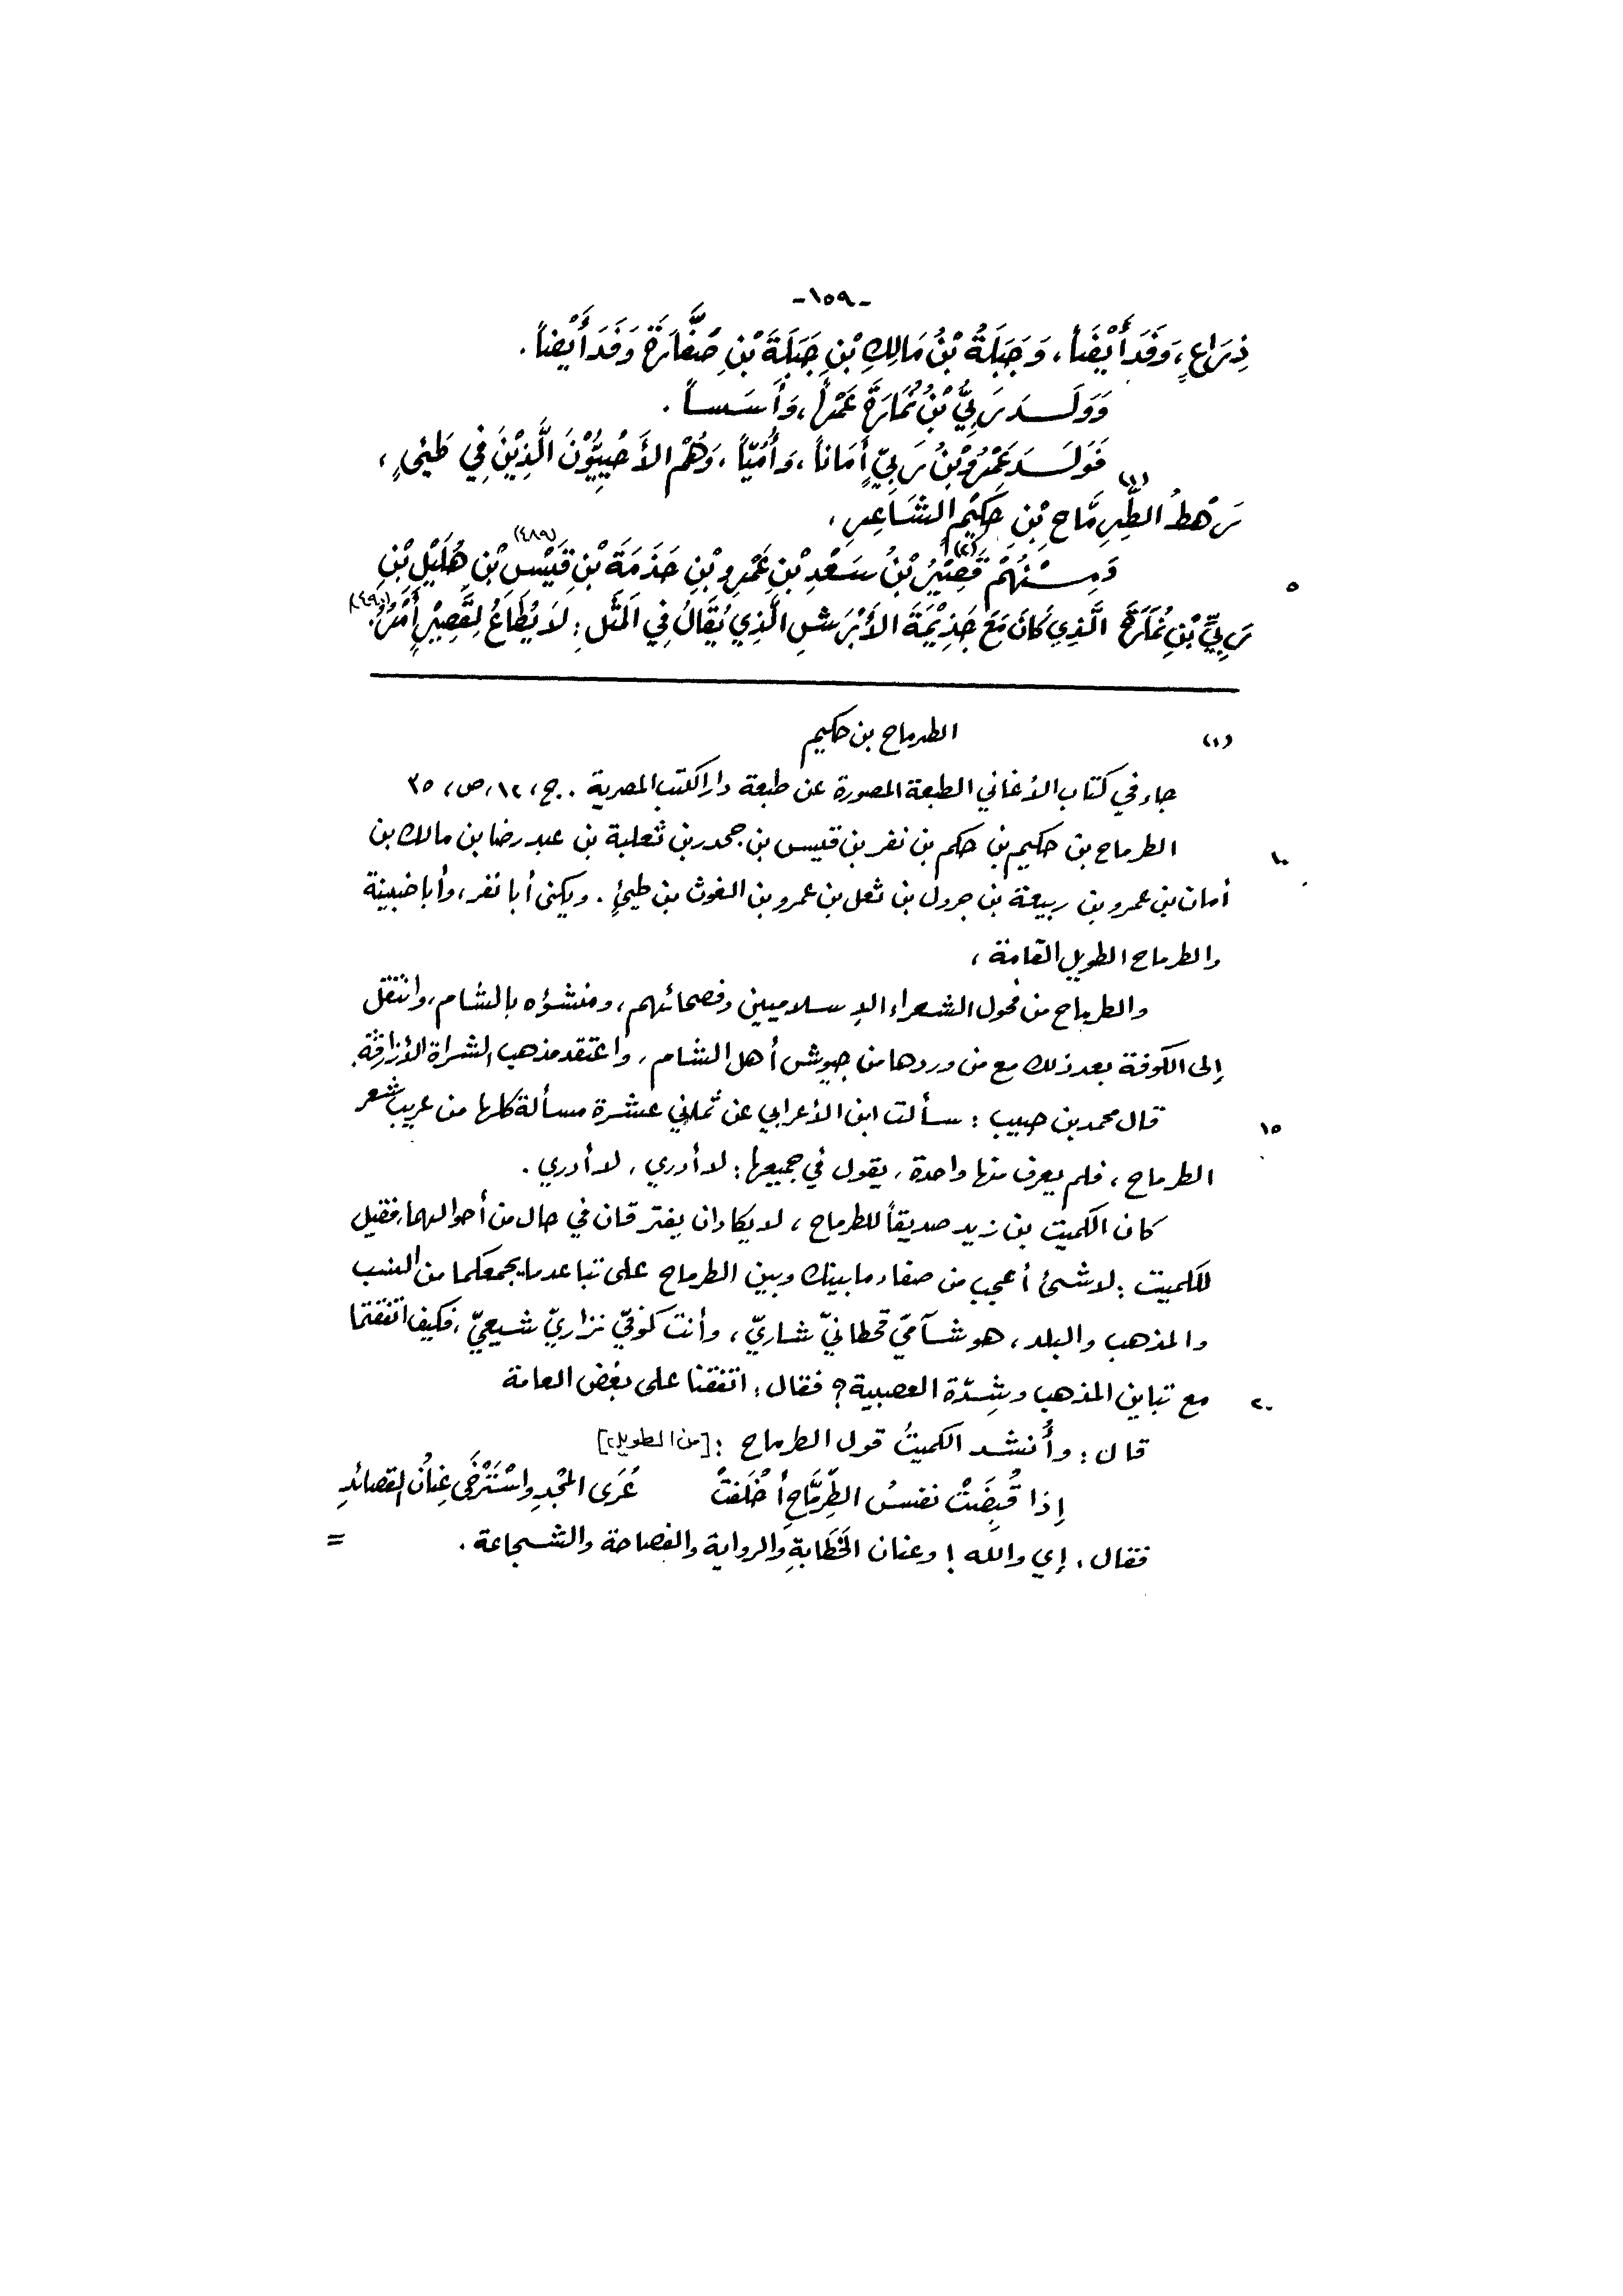 -١٥٩-
ذِرَاعٍ، وَفَدَ أَيْضَاً، وَجَبَلَةُ بْنُ مَالِكِ بْنِ جَبَلَةَ بْنِ صَفَّارَةَ وَفَدَ أَيْضاً.
وَوَلَدَ رَبِيُّ بْنُ نُمَارَةَ عَمْراً، وَأَسَساً.
فَوَلَدَ عَمْرُو بْنُ رَبِيٍّ أَمَاناً، وَأُمَيّاً، وَهُمْ الأَحْبِيُّوْنَ الَّذِيْنَ فِي طَيِّئٍ،
رَهْطُ الطِّرِمَّاحِ (١) بْنِ حَكِيْمٍ الشَاعِرِ،
٥ وَمِنْهُمْ قَصِيْرُ (٢) بْنُ سَعْدِ بْنِ عَمْرِو بْنِ جَذَمَةَ بْنِ قَيْسِ (٤٨٩) بْنِ هُلَيْلِ بْنِ
رَبِيِّ بْنِ نُمَارَةَ الَّذِي كَانَ مَعَ جَذِيْمَةَ الأَبْرَشِ الَّذِي يُقَالُ فِي المَثَلِ: لاَ يُطَاعُ لِقَصِيْرٍ أَمْرٌ. (٤٩٠)
(١) الطرماح بن حكيم
جاء في كتاب الأغاني الطبعة المصورة عن طبعة دار الكتب المصرية. ج، ١٢، ص، ٣٥
١٠ الطرماح بن حكيم بن حكم بن نفر بن قيس بن جحدر بن ثعلبة بن عبد رضا بن مالك بن
أمان بن عمرو بن ربيعة بن جرول بن ثعل بن عمرو بن الغوث بن طيئٍ. ويكنى أبا نفر، وأبا ضبينة
والطرماح الطويل القامة،
والطرماح من فحول الشعراء الإسلاميين وفصحائهم، ومنشؤه بالشام، وانتقل
إلى الكوفة بعد ذلك مع من وردها من جيوش أهل الشام، واعتقد مذهب الشراة الأزارقة.
١٥ قال محمد بن حبيب: سألت ابن الأعرابي عن ثماني عشرة مسألة كلها من غريب شعر
الطرماح، فلم يعرف منها واحدة، يقول في جميعها: لا أدري، لا أدري.
كان الكميت بن زيد صديقاً للطرماح، لا يكادان يفترقان في حال من أحوالهما، فقيل
للكميت: لا شئ أعجب من صفاء ما بينك وبين الطرماح على تباعد ما يجمعكما من النسب
والمذهب والبلد، هو شآميّ قحطانيّ شاريّ، وأنت كوفيّ نزاريّ شيعيّ، فكيف اتفقتما
٢٠ مع تباين المذهب وشِدّة العصبية؟ فقال: اتفقنا على بغض العامة
قال: وأُنشد الكميتُ قول الطرماح: [من الطويل]
إِذا قُبِضَتْ نفسُ الطِّرِمَّاحِ أَخْلَقَتْ    عُرَى المَجْدِ واسْتَرْخَى عِنانُ القصائدِ
فقال، إي والله! وعنان الخَطَابةِ والرواية والفصاحة والشجاعة. =